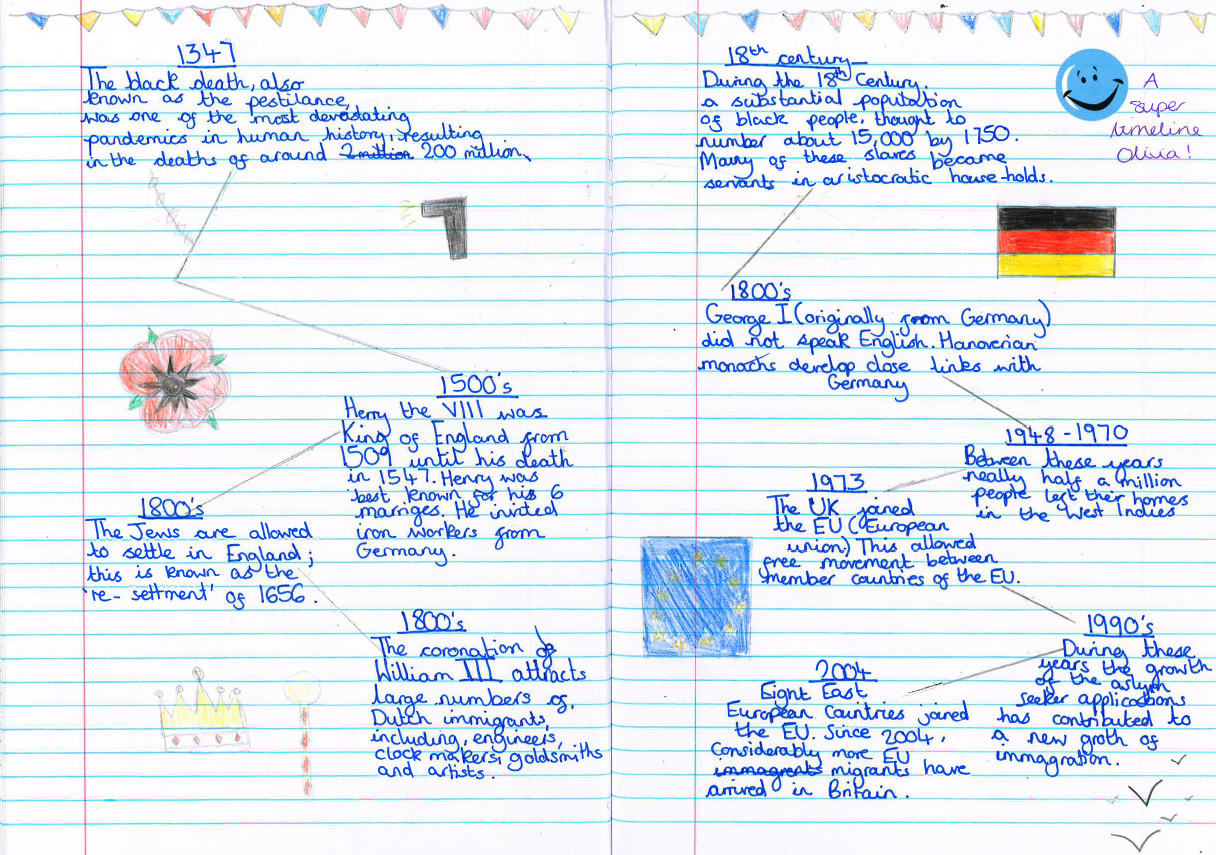 1347
The black death, also
known as the pestilance,
was one of the most devastating
pandemics in human history, resulting
in the deaths of around 2 million 200 million.
1500's
Henry the VIII was
King of England from
1509 until his death
in 1547. Henry was
best known for his 6
marriges. He invited
iron workers from
Germany.
1800's
The Jews are allowed
to settle in England;
this is known as the
're-settment' of 1656.
1800's
The coronation of
William III attracts
large numbers of,
Dutch immigrants,
including, engineers,
clock makers, goldsmiths
and artists.
18th century
During the 18th Century.
a substantial population
of black people, thought to
number about 15,000 by 1750.
Many of these slaves became
servants in aristocratic house-holds.
A
super
timeline
Olivia!
1800's
George I (originally from Germany)
did not speak English. Hanoverian
monachs develop close links with
Germany
1948-1970
Between these years
neally half a million
people left their homes
in the West Indies
1973
The UK joined
the EU (European
union) This allowed
free movement between
member countries of the EU.
1990's
During these
years the growth
of the aslym
seeker applications
has contributed to
a new groth of
immagration.
2004
Eight East
European Countries joined
the EU. Since 2004,
Considerably more EU
immagrents migrants have
arrived in Britain.